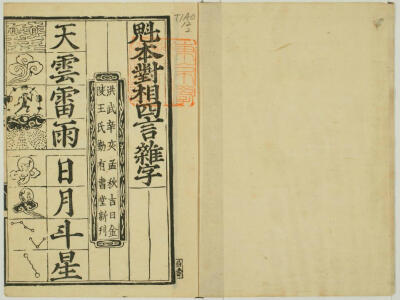 魁本對相四言雜字
洪武辛亥孟秋吉日金
陵王氏勤有書堂新刊
天雲雷雨
日月斗星